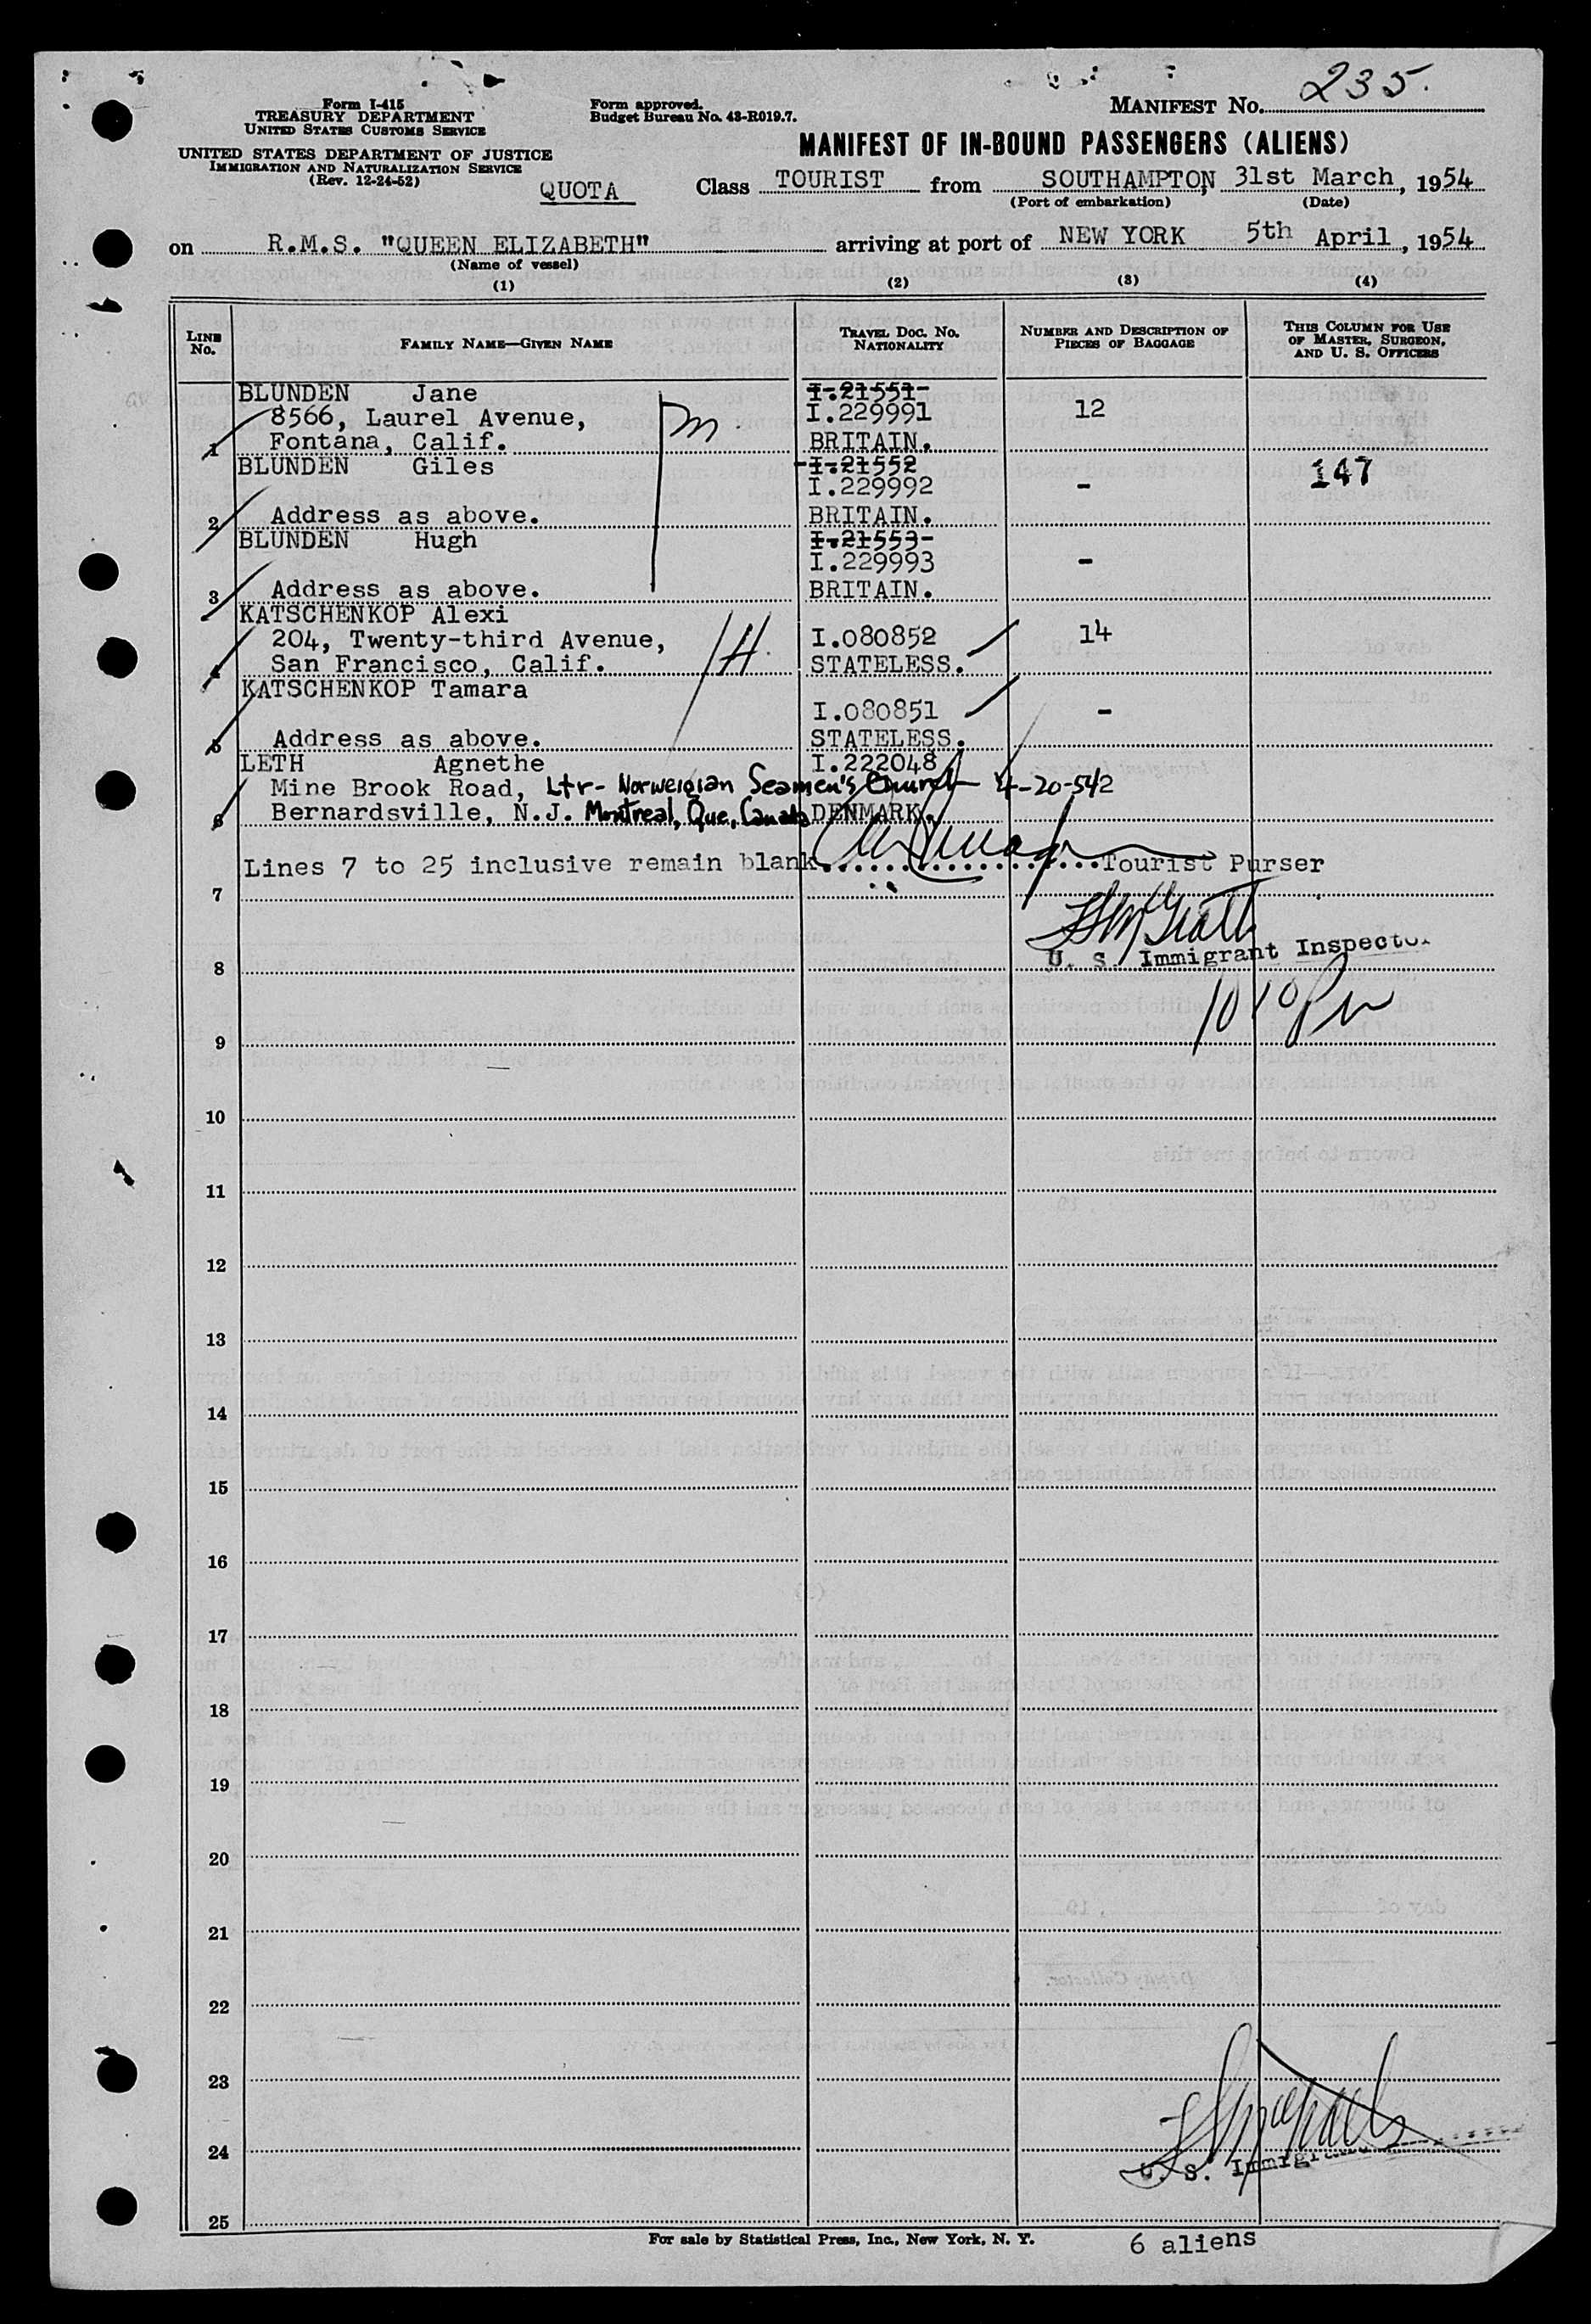 235.
Form I-415
TREASURY DEPARTMENT
UNITED STATES CUSTOMS SERVICE
Form approved.
Budget Bureau No. 43-R019.7.
MANIFEST No.
UNITED STATES DEPARTMENT OF JUSTICE
IMMIGRATION AND NATURALIZATION SERVICE
(Rev. 12-24-52)
MANIFEST OF IN-BOUND PASSENGERS (ALIENS)
QUOTA Class TOURIST from SOUTHAMPTON, 31st March, 1954
(Port of embarkation) (Date)
on R.M.S. "QUEEN ELIZABETH" arriving at port of NEW YORK 5th April, 1954
(Name of vessel)
(1) (2) (3) (4)
LINE No. FAMILY NAME—GIVEN NAME TRAVEL DOC. NO. NATIONALITY NUMBER AND DESCRIPTION OF PIECES OF BAGGAGE THIS COLUMN FOR USE OF MASTER, SURGEON, AND U. S. OFFICERS
BLUNDEN Jane I.21551
8566, Laurel Avenue, I.229991 12
1 Fontana, Calif. BRITAIN.
BLUNDEN Giles I.21552
I.229992 - 147
2 Address as above. BRITAIN.
BLUNDEN Hugh I.21553
I.229993 -
3 Address as above. BRITAIN.
KATSCHENKOP Alexi
204, Twenty-third Avenue, I.080852 14
4 San Francisco, Calif. STATELESS.
KATSCHENKOP Tamara
I.080851 -
5 Address as above. STATELESS.
LETH Agnethe I.222048
Mine Brook Road, Ltr- Norweigian Seamen's Church 4-20-54 2
6 Bernardsville, N.J. Montreal, Que, Canada DENMARK.
Lines 7 to 25 inclusive remain blank Tourist Purser
7
U. S. Immigrant Inspector
8
9
10
11
12
13
14
15
16
17
18
19
20
21
22
23
24
U. S.
25
For sale by Statistical Press, Inc., New York, N. Y.
6 aliens